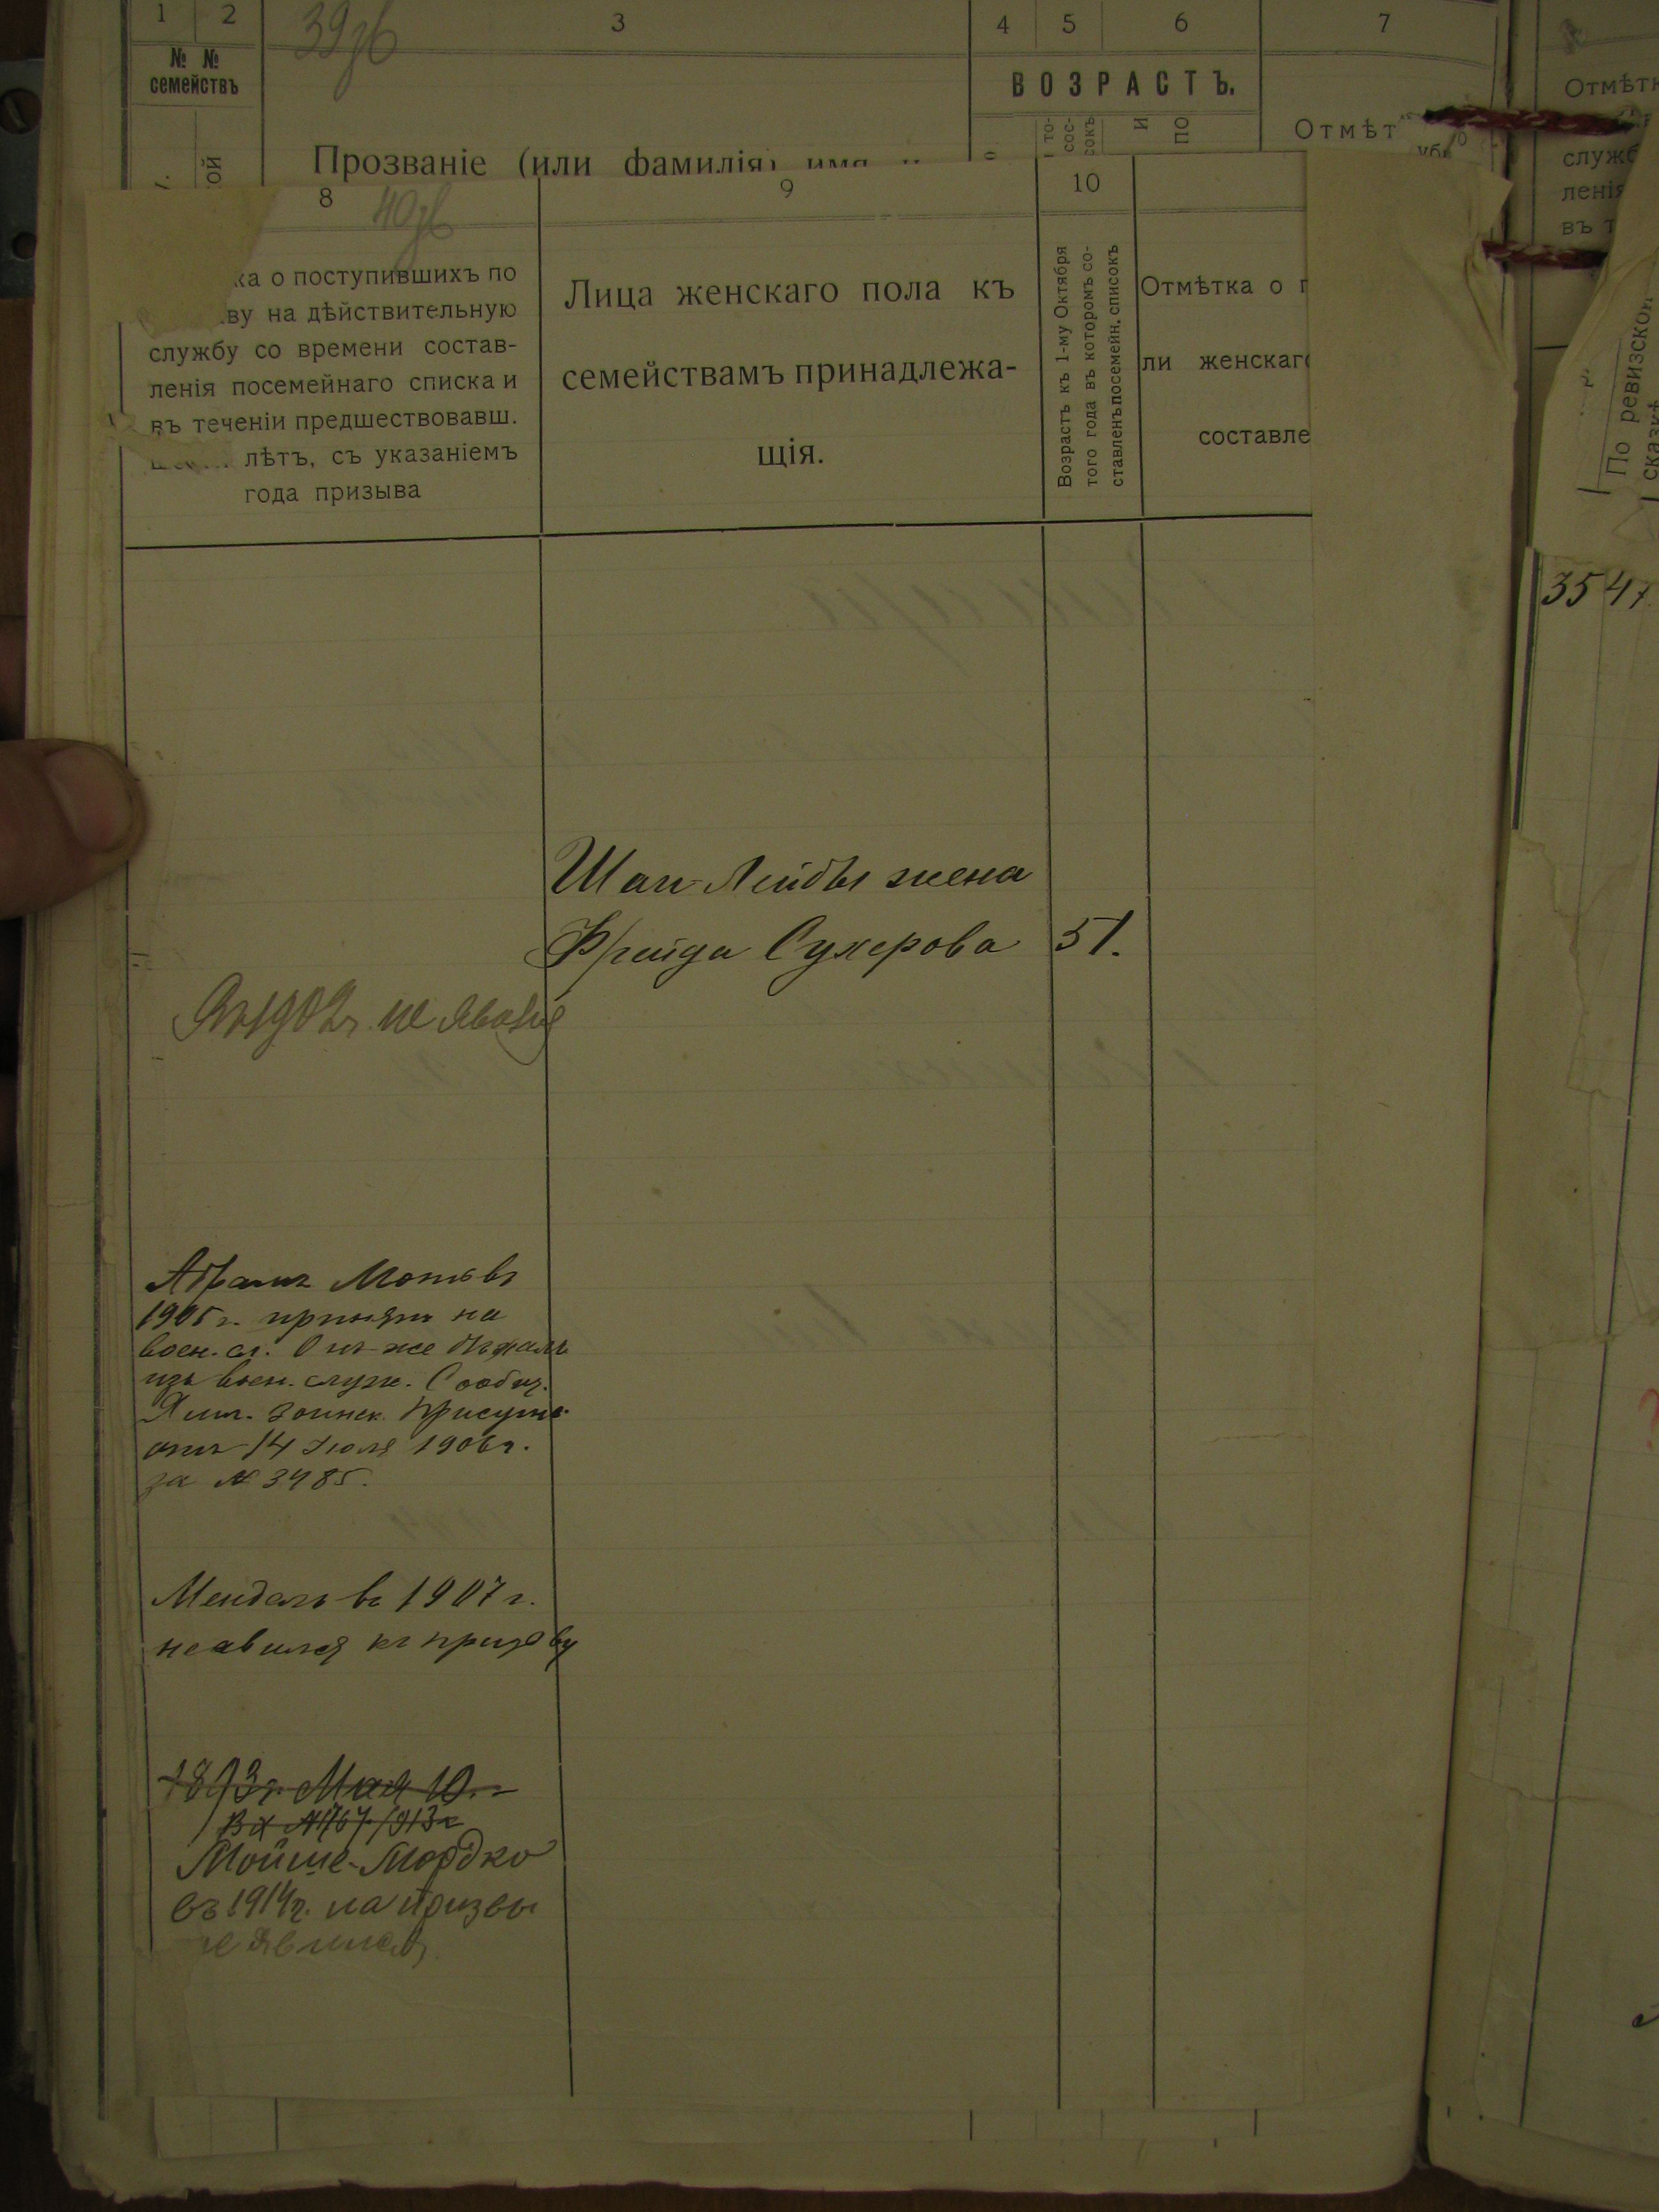 1 2 3 4 5 6 7
39об
№ №
семействъ
ВОЗРАСТЪ.
Отмѣт
Прозваніе (или фамилія) имя
8 9 10
40об
ка о поступившихъ по
ву на дѣйствительную
службу со времени состав-
ленія посемейнаго списка и
въ теченіи предшествовавш.
лѣтъ, съ указаніемъ
года призыва
Лица женскаго пола къ
семействамъ принадлежа-
щія.
Возрастъ къ 1-му Октября
того года въ которомъ со-
ставленъ посемейн. списокъ
Отмѣтка о п
ли женскаго
составле
Отмѣтк
служб
ленія
въ т
По ревизской
сказкѣ
3547
Лейбы жена
Фрейда Сухерова 51.
1902г. не
Абрамъ Мотъ въ
1905г. принятъ на
воен. сл. Онъ-же бѣжалъ
изъ воен. служ. Сообщ.
воинск. Присутс.
отъ 14 Іюля 1906г.
за № 3485.
Мендель въ 1907г.
неявился къ призову
1893г. Мая 10.
Вх №1767/913г
Мойше-Мордко
въ 1914г. на призвы
е явился